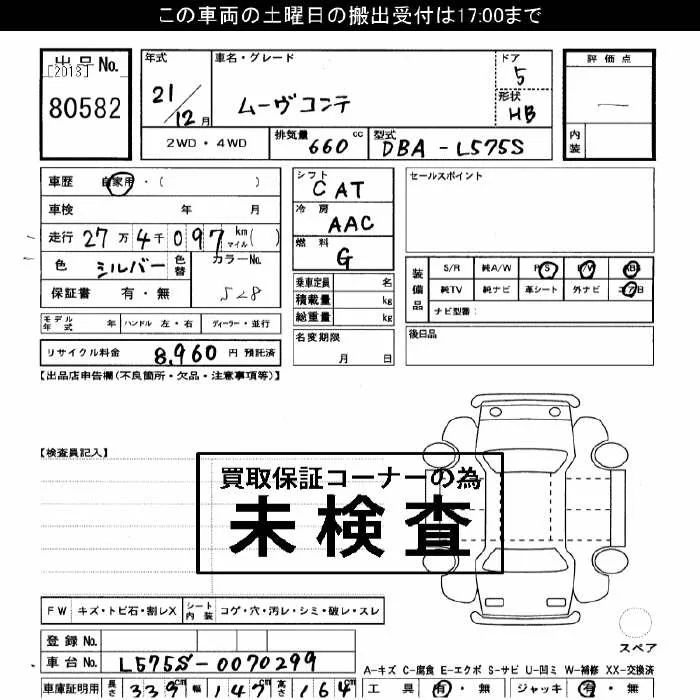 この車両の土曜日の搬出受付は17:00まで
出品No.
[2013]
80582
年式
21/12月
車名・グレード
ムーヴコンテ
ドア
5
形状
HB
評価点
―
内装
2WD・4WD
排気量
660cc
型式
DBA-L575S
車歴 自家用・( )
車検 年 月
走行 27万4千097km マイル( )
色 シルバー 色替 カラーNo.
S28
保証書 有・無
モデル年式 年 ハンドル 左・右 ディーラー・並行
リサイクル料金 8,960円 預託済
シフト
CAT
冷房
AAC
燃料
G
乗車定員 名
積載量 kg
総重量 kg
名変期限
月 日
セールスポイント
装備品
S/R 純A/W P/S P/W ABS
純TV 純ナビ 革シート 外ナビ エアB
ナビ型番:
後日品
【出品店申告欄(不良箇所・欠品・注意事項等)】
【検査員記入】
買取保証コーナーの為
未検査
FW キズ・トビ石・割レX シート内装 コゲ・穴・汚レ・シミ・破レ・スレ
登録No.
車台No. L575S-0070299
車庫証明用 長さ 339cm 幅 147cm 高さ 164cm
スペア
A-キズ C-腐食 E-エクボ S-サビ U-凹ミ W-補修 XX-交換済
工具 有・無 ジャッキ 有・無